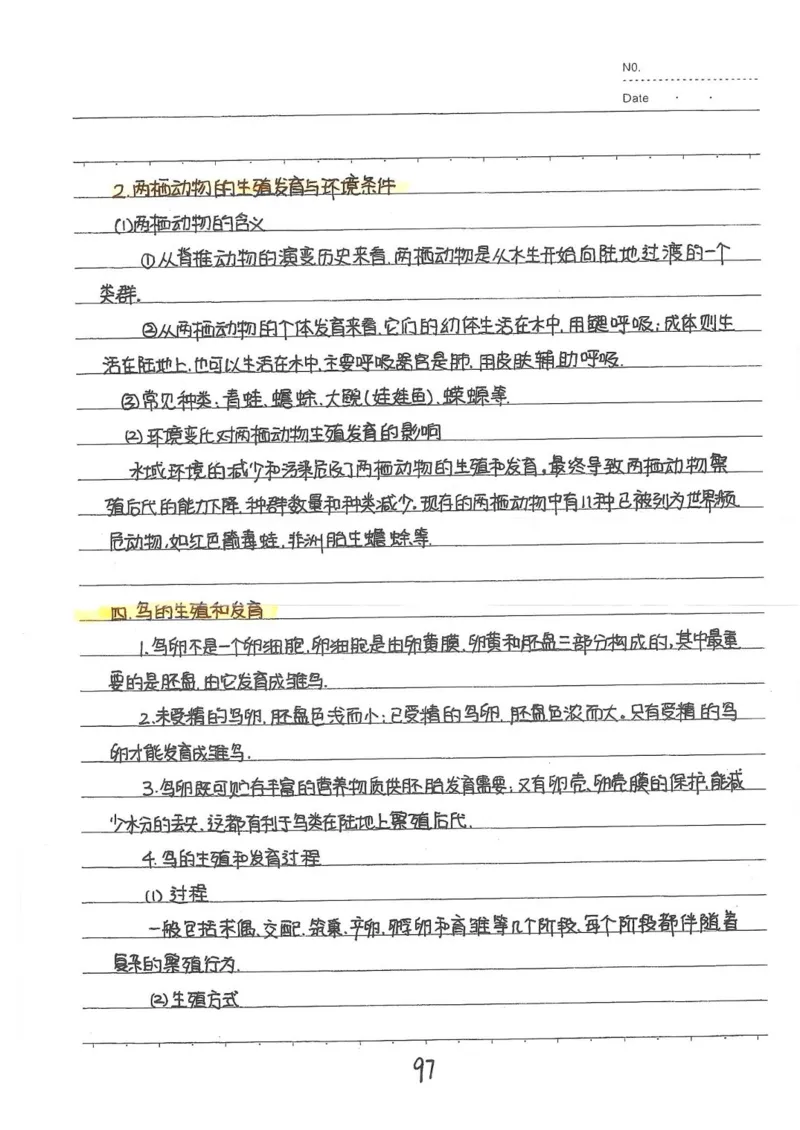 NO.
Date . .
2.两栖动物的生殖发育与环境条件
(1)两栖动物的含义
①从脊椎动物的演变历史来看,两栖动物是从水生开始向陆地过渡的一个
类群.
②从两栖动物的个体发育来看,它们的幼体生活在水中,用鳃呼吸;成体则生
活在陆地上,也可以生活在水中,主要呼吸器官是肺,用皮肤辅助呼吸.
③常见种类:青蛙、蟾蜍、大鲵(娃娃鱼)、蝾螈等.
(2)环境变化对两栖动物生殖发育的影响
水域环境的减少和污染危及了两栖动物的生殖和发育。最终导致两栖动物繁
殖后代的能力下降,种群数量和种类减少。现在的两栖动物中有儿种已被列为世界频
危动物,如红色箭毒蛙,非洲胎生蟾蜍等.
四.鸟的生殖和发育
1.鸟卵不是一个卵细胞,卵细胞是由卵黄膜、卵黄和胚盘三部分构成的,其中最重
要的是胚盘,由它发育成雏鸟.
2.未受精的鸟卵,胚盘色浅而小;已受精的鸟卵,胚盘色浓而大。只有受精的鸟
卵才能发育成雏鸟.
3.鸟卵既可贮存丰富的营养物质供胚胎发育需要;又有卵壳、卵壳膜的保护,能减
少水分的丢失,这都有利于鸟类在陆地上繁殖后代.
4.鸟的生殖和发育过程
(1)过程
一般包括求偶、交配、筑巢、产卵、孵卵和育雏等几个阶段,每个阶段都伴随着
复杂的繁殖行为.
(2)生殖方式
97